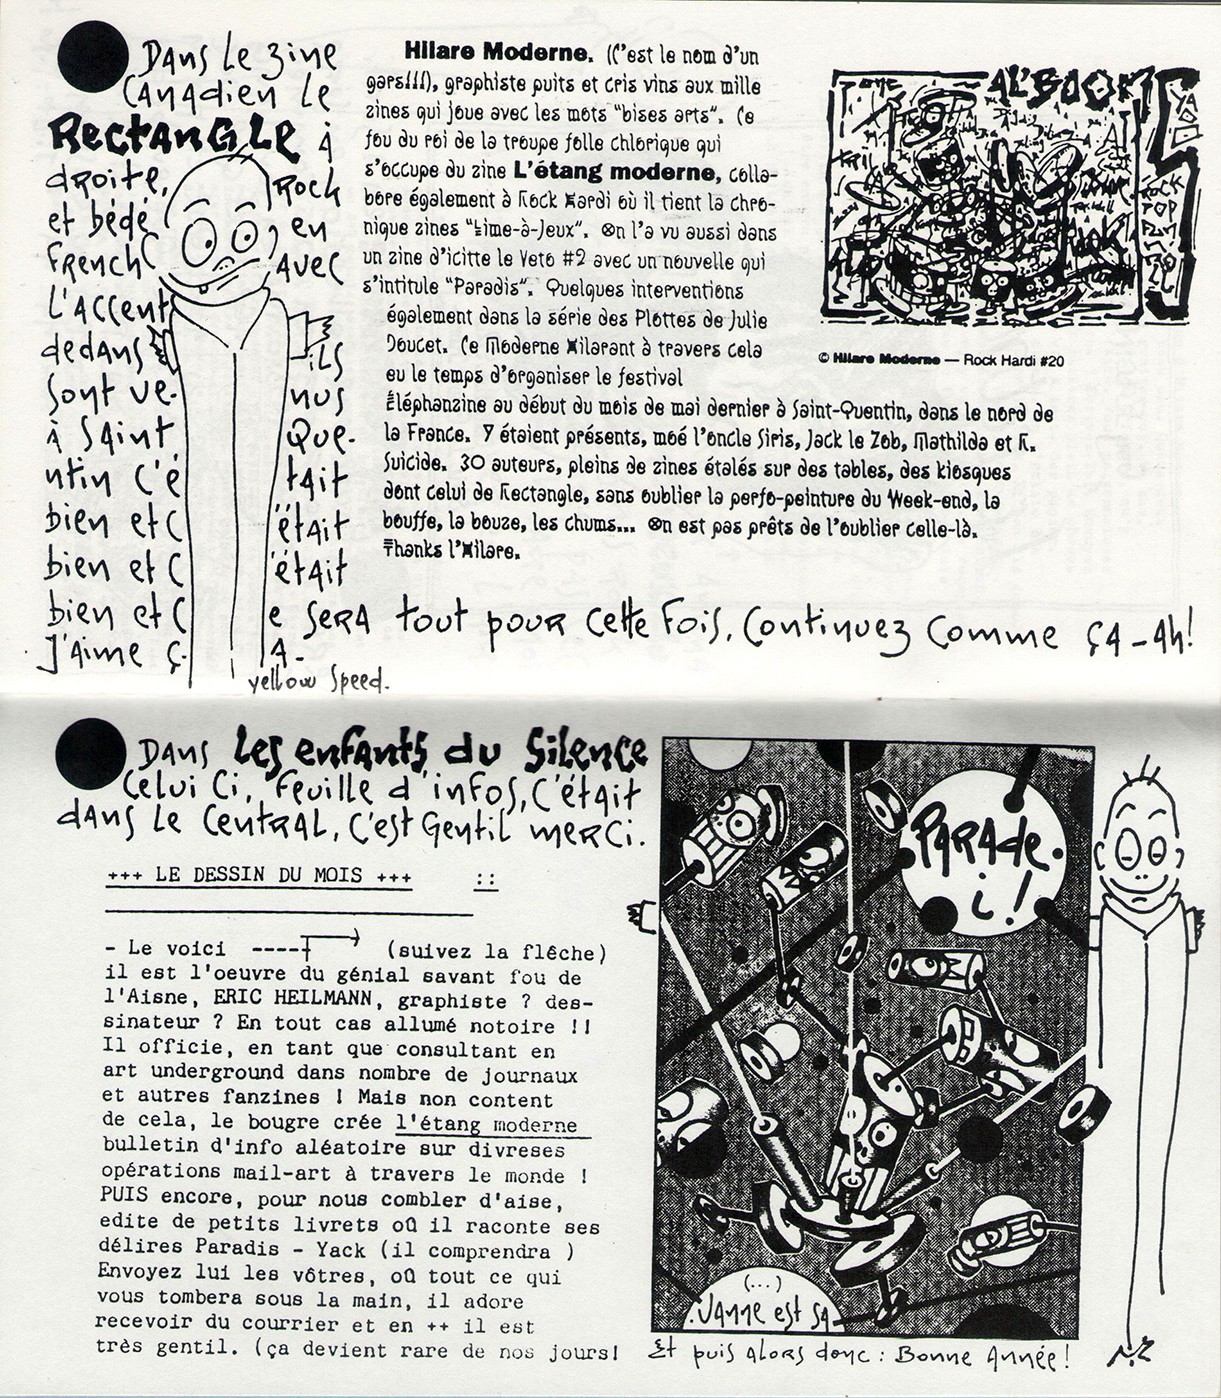 Dans le zine
Canadien le
Rectangle à
droite, Rock
et bédé en
French avec
l'accent
dedans ils
sont ve- nus
à Saint Que-
ntin c'é tait
bien et c 'était
bien et c 'était
bien et c e sera tout pour cette fois, continuez comme ça - ah!
J'aime ç a.
yellow speed.
Hilare Moderne. (C'est le nom d'un
gars!!!), graphiste puits et cris vins aux mille
zines qui joue avec les mots "bises arts". Ce
fou du roi de la troupe folle chlorique qui
s'occupe du zine L'étang moderne, colla-
bore également à Rock Hardi où il tient la chro-
nique zines "Lime-à-Jeux". On l'a vu aussi dans
un zine d'icitte le Veto #2 avec un nouvelle qui
s'intitule "Paradis". Quelques interventions
également dans la série des Plottes de Julie
Doucet. Ce Moderne Hilarant à travers cela
eu le temps d'organiser le festival
Éléphanzine au début du mois de mai dernier à Saint-Quentin, dans le nord de
la France. Y étaient présents, moé l'oncle Siris, Jack le Zob, Mathilda et R.
Suicide. 30 auteurs, pleins de zines étalés sur des tables, des kiosques
dont celui de Rectangle, sans oublier la perfo-peinture du Week-end, la
bouffe, la bouze, les chums... On est pas prêts de l'oublier celle-là.
Thanks l'Hilare.
© Hilare Moderne — Rock Hardi #20
Dans Les enfants du Silence
Celui ci, feuille d'infos, c'était
dans le Central, c'est Gentil merci.
+++ LE DESSIN DU MOIS +++ ::
- Le voici ---- (suivez la flêche)
il est l'oeuvre du génial savant fou de
l'Aisne, ERIC HEILMANN, graphiste ? des-
sinateur ? En tout cas allumé notoire !!
Il officie, en tant que consultant en
art underground dans nombre de journaux
et autres fanzines ! Mais non content
de cela, le bougre crée l'étang moderne
bulletin d'info aléatoire sur divreses
opérations mail-art à travers le monde !
PUIS encore, pour nous combler d'aise,
edite de petits livrets où il raconte ses
délires Paradis - Yack (il comprendra )
Envoyez lui les vôtres, où tout ce qui
vous tombera sous la main, il adore
recevoir du courrier et en ++ il est
très gentil. (ça devient rare de nos jours!
Parade
i!
(...)
.Vanne est sa
Et puis alors donc : Bonne Année !